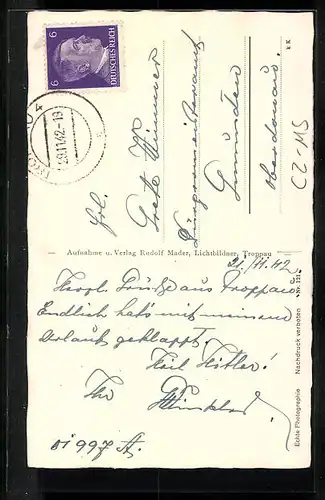 6 DEUTSCHES REICH 6
29.11.42-19
Frl.
Grete Wimmer
Bürgermeisteramt
Gmunden
Oberdonau.
CZ-115
Aufnahme u. Verlag Rudolf Mader, Lichtbildner, Troppau
29./11.42
Herzl. Grüße aus Troppau
Endlich hat's mit meinem
Urlaub geklappt.
Heil Hitler!
Ihr Winkler
Echte Photographie Nachdruck verboten Nr. 191